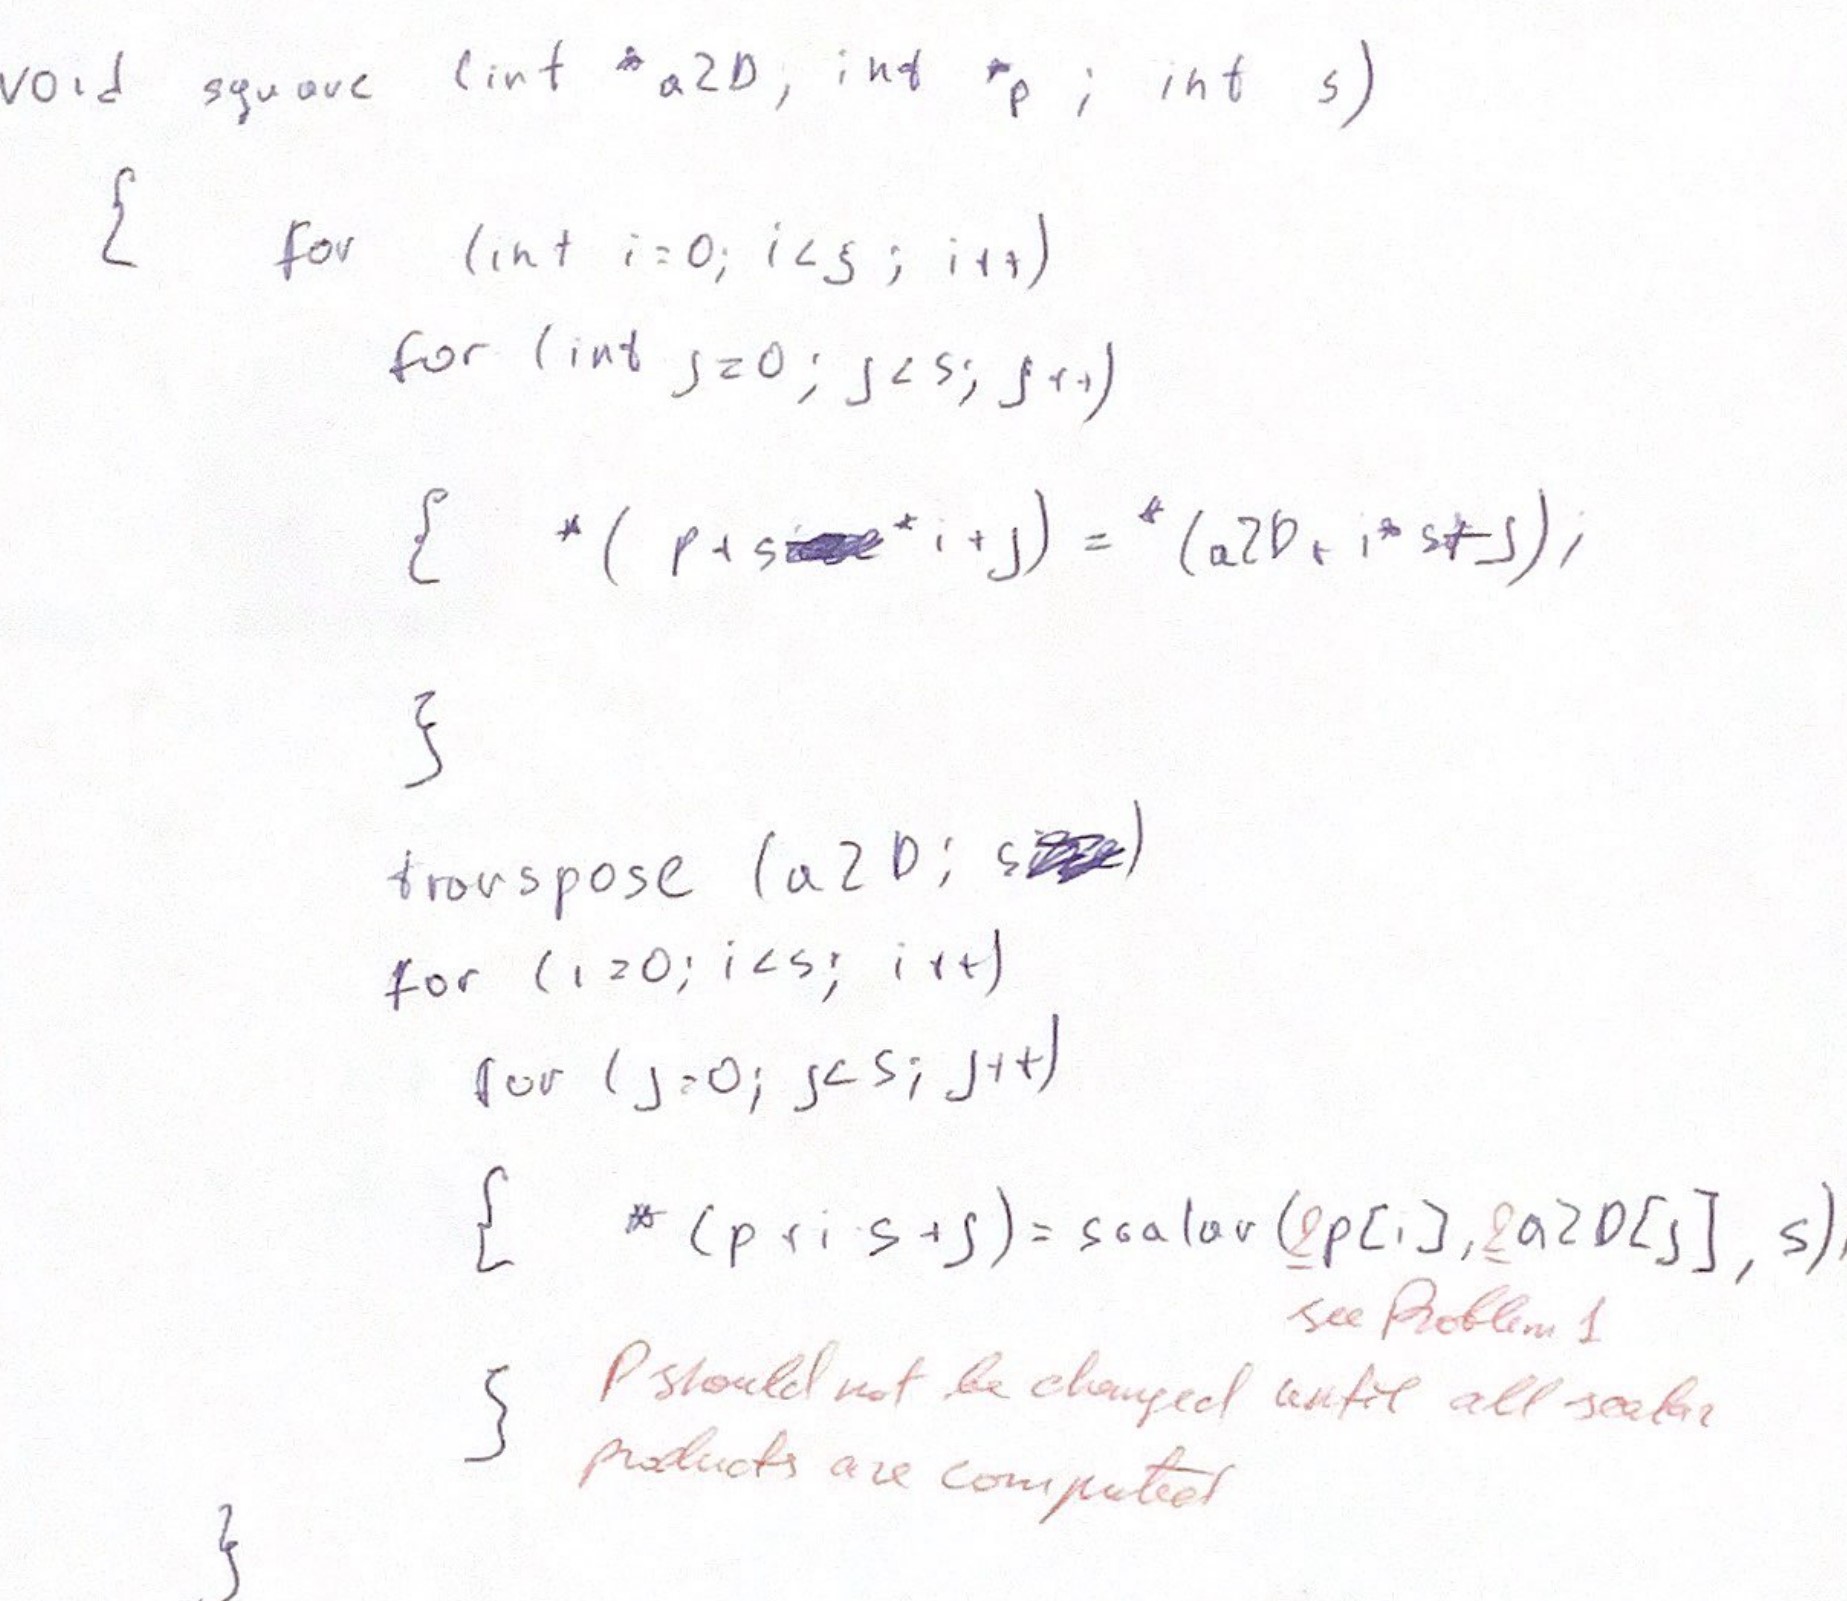 void square (int *a2D; int *p ; int s)
{ for (int i=0; i<s ; i++)
for (int j=0; j<s; j++)
{ *( p+s*i+j) = *(a2D+i*s+j);
}
transpose (a2D; s)
for (i=0; i<s; i++)
for (j=0; j<s; j++)
{ *(p+i·s+j)=scalar(&p[i],&a2D[j], s);
see Problem 1
} P should not be changed until all scalar
products are computed
}